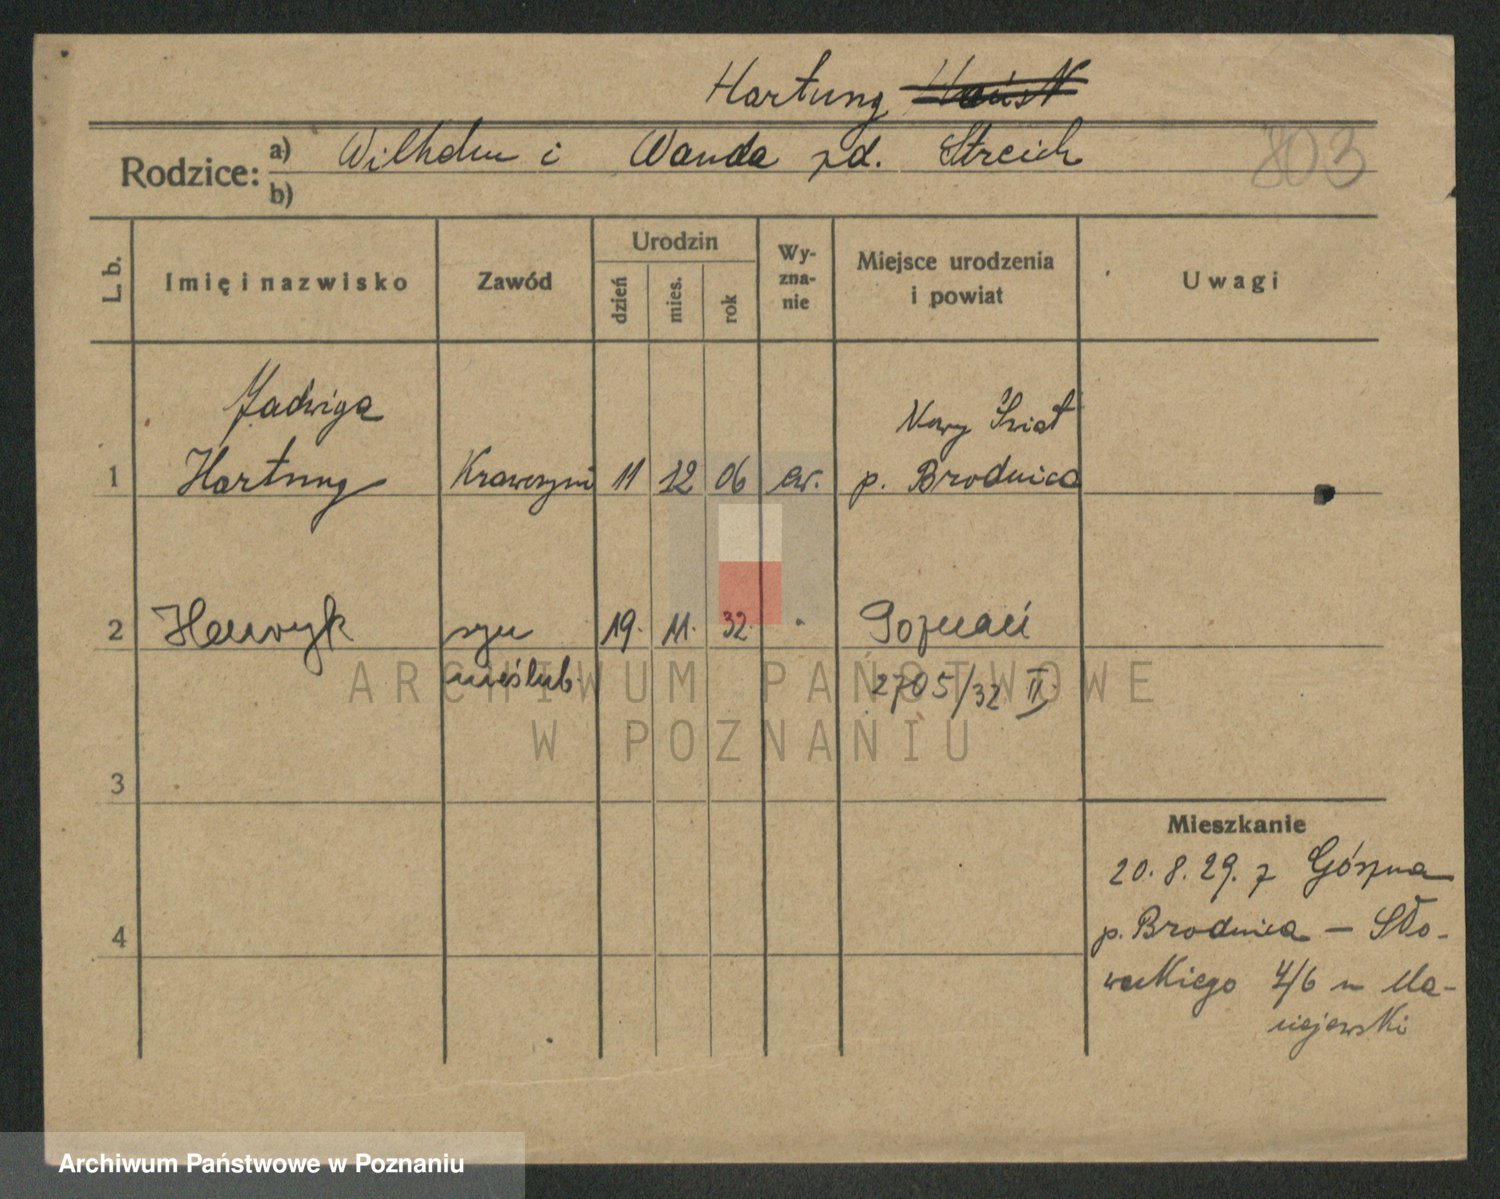 Hartung
Rodzice: a) Wilhelm i Wanda zd. Streich
b)
803
L. b.
Imię i nazwisko
Zawód
Urodzin
dzień
mies.
rok
Wy-
zna-
nie
Miejsce urodzenia
i powiat
Uwagi
Jadwiga
Nowy Świat
1 Hartung Krawczyni 11 12 06 ew. p. Brodnica
2 Henryk syn 19. 11. 32. Poznań
nieślub. 2705/32 II
ARCHIWUM PAŃSTWOWE
W POZNANIU
3
4
Mieszkanie
20. 8. 29. z Górzna
p. Brodnica - Sło-
wackiego 4/6 u Ma-
ciejewski
Archiwum Państwowe w Poznaniu